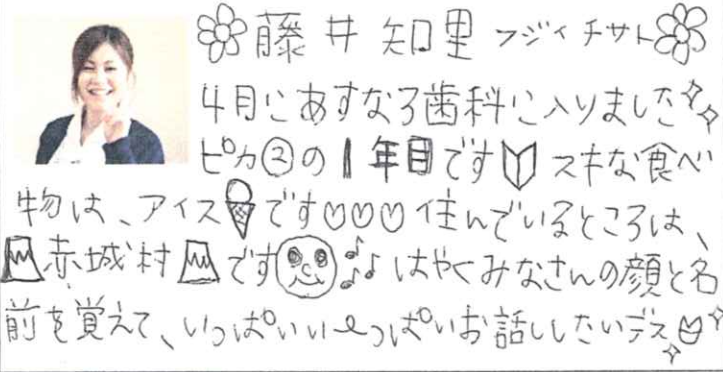 藤井 知里 フジイ チサト
4月にあすなろ歯科に入りました
ピカ②の1年目です スキな食べ
物は、アイス です♡♡♡ 住んでいるところは、
赤城村 です ♪♪♪ はやくみなさんの顔と名
前を覚えて、いっぱいい〜っぱいお話ししたいデス